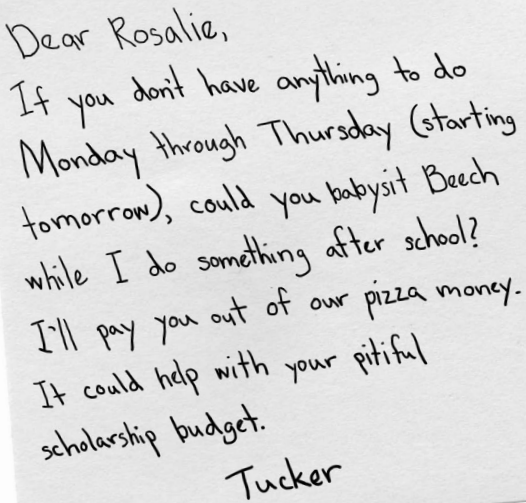 Dear Rosalie,
If you don't have anything to do
Monday through Thursday (starting
tomorrow), could you babysit Beech
while I do something after school?
I'll pay you out of our pizza money.
It could help with your pitiful
scholarship budget.
Tucker